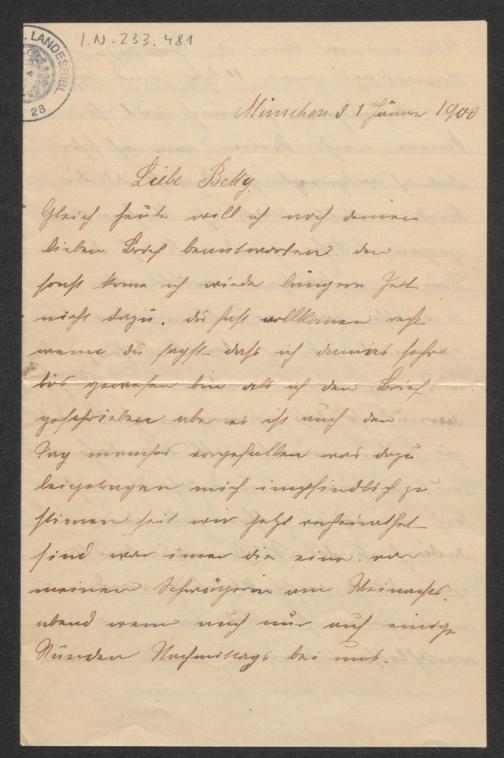 I.N. 233.481
LANDESBIBL
28
München d 1 Jänner 1900
Liebe Betty.
Gleich heute will ich noch deinen
lieben Brief beantworten den
sonst kome ich wieder längere Zeit
nicht dazu. du hast vollkomen recht
wenn du sagst dass ich damals sehr
bös gewesen bin als ich den Brief
geschrieben aber es ist auch den
Tag manches vorgefallen was dazu
beigetragen mich empfindlich zu
stimen seit wir jetzt verheirathet
sind war imer die eine von
meinen Schwägerin am Weinachts.
abend wenn auch nur auf einige
Stunden Nachmittags bei uns.